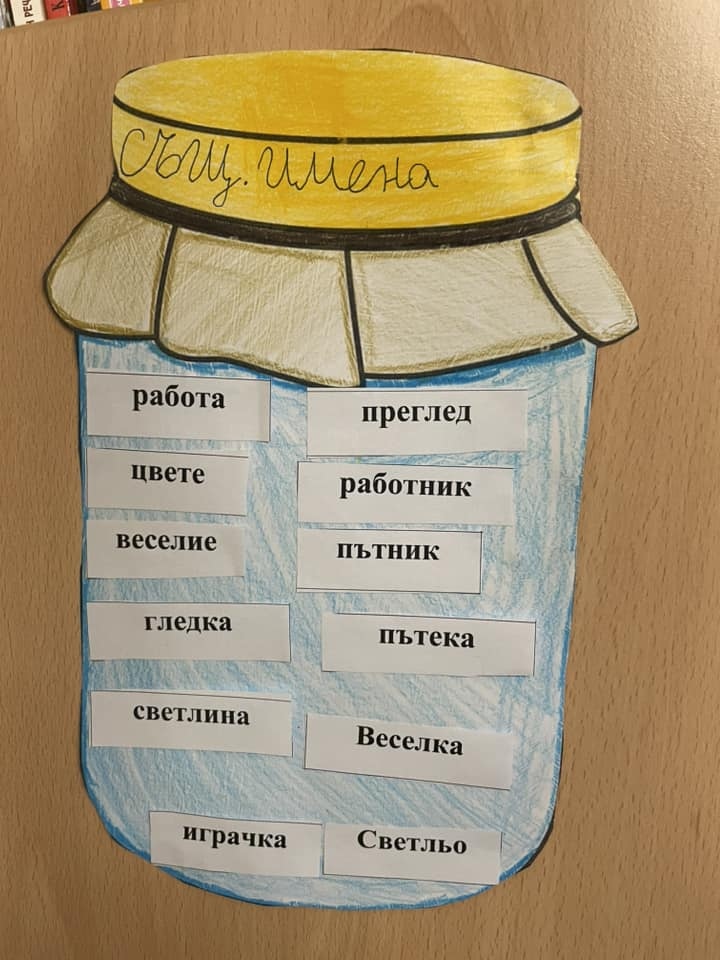 същ. имена
работа
преглед
цвете
работник
веселие
пътник
гледка
пътека
светлина
Веселка
играчка
Светльо